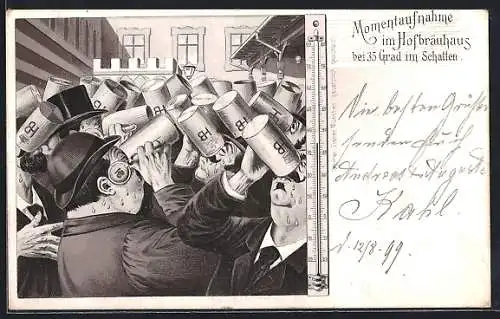 Momentaufnahme
im Hofbräuhaus
bei 35 Grad im Schatten.
Die besten Grüße
senden Euch
Andreas u August
Kahl.
d. 12/8. 99.
HB
HB
HB
HB